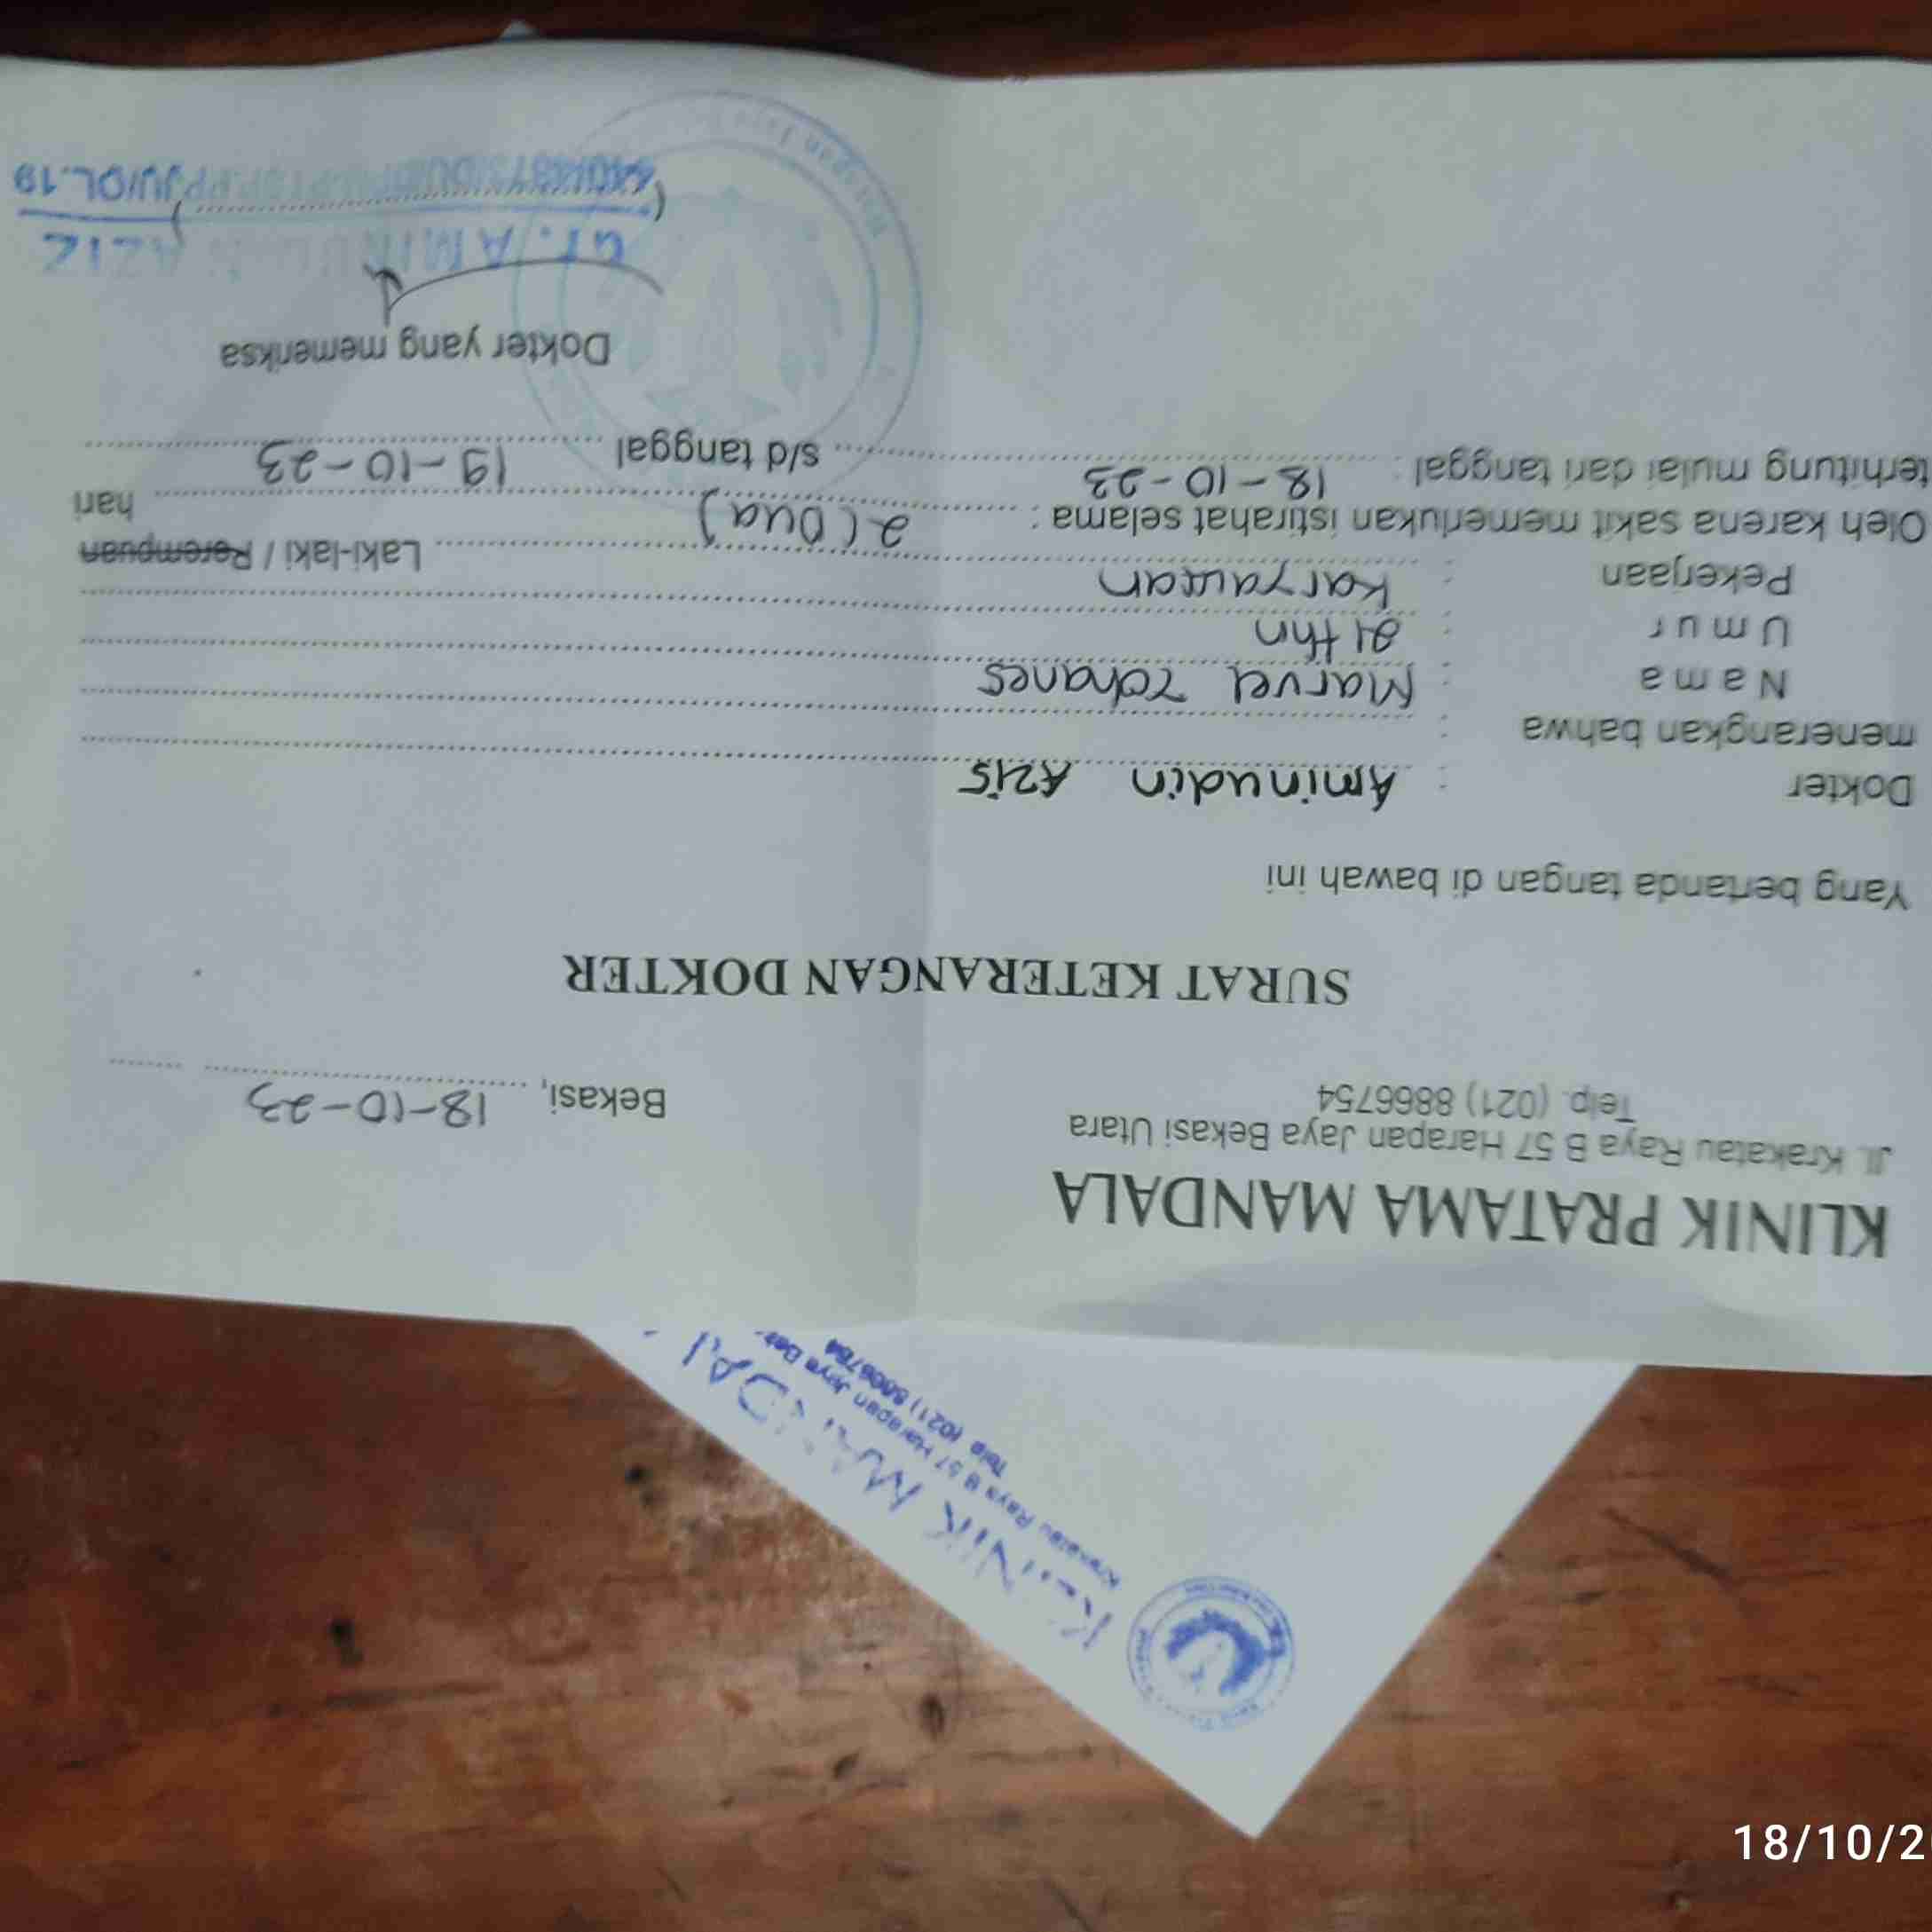 KLINIK PRATAMA MANDALA
Jl. Krakatau Raya B 57 Harapan Jaya Bekasi Utara
Telp. (021) 8866754
Bekasi, 18-10-23
SURAT KETERANGAN DOKTER
Yang bertanda tangan di bawah ini
Dokter : Aminudin Azis
menerangkan bahwa :
Nama : Marvel Yohanes
Umur : 21 thn
Pekerjaan : Karyawan Laki-laki / Perempuan
Oleh karena sakit memerlukan istirahat selama : 2 (Dua) hari
terhitung mulai dari tanggal : 18-10-23 s/d tanggal 19-10-23
Dokter yang memeriksa
dr. AMINUDIN AZIZ
KLINIK MANDAL
Krakatau Raya B 57 Harapan Jaya
Telp (021) 8866754
18/10/2